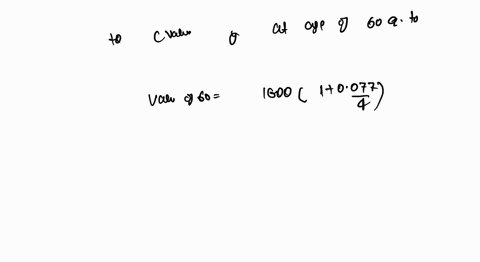 to C value of at age of 60 a. to
Value of 60 = 1600 ( 1 + 0.077/4 )